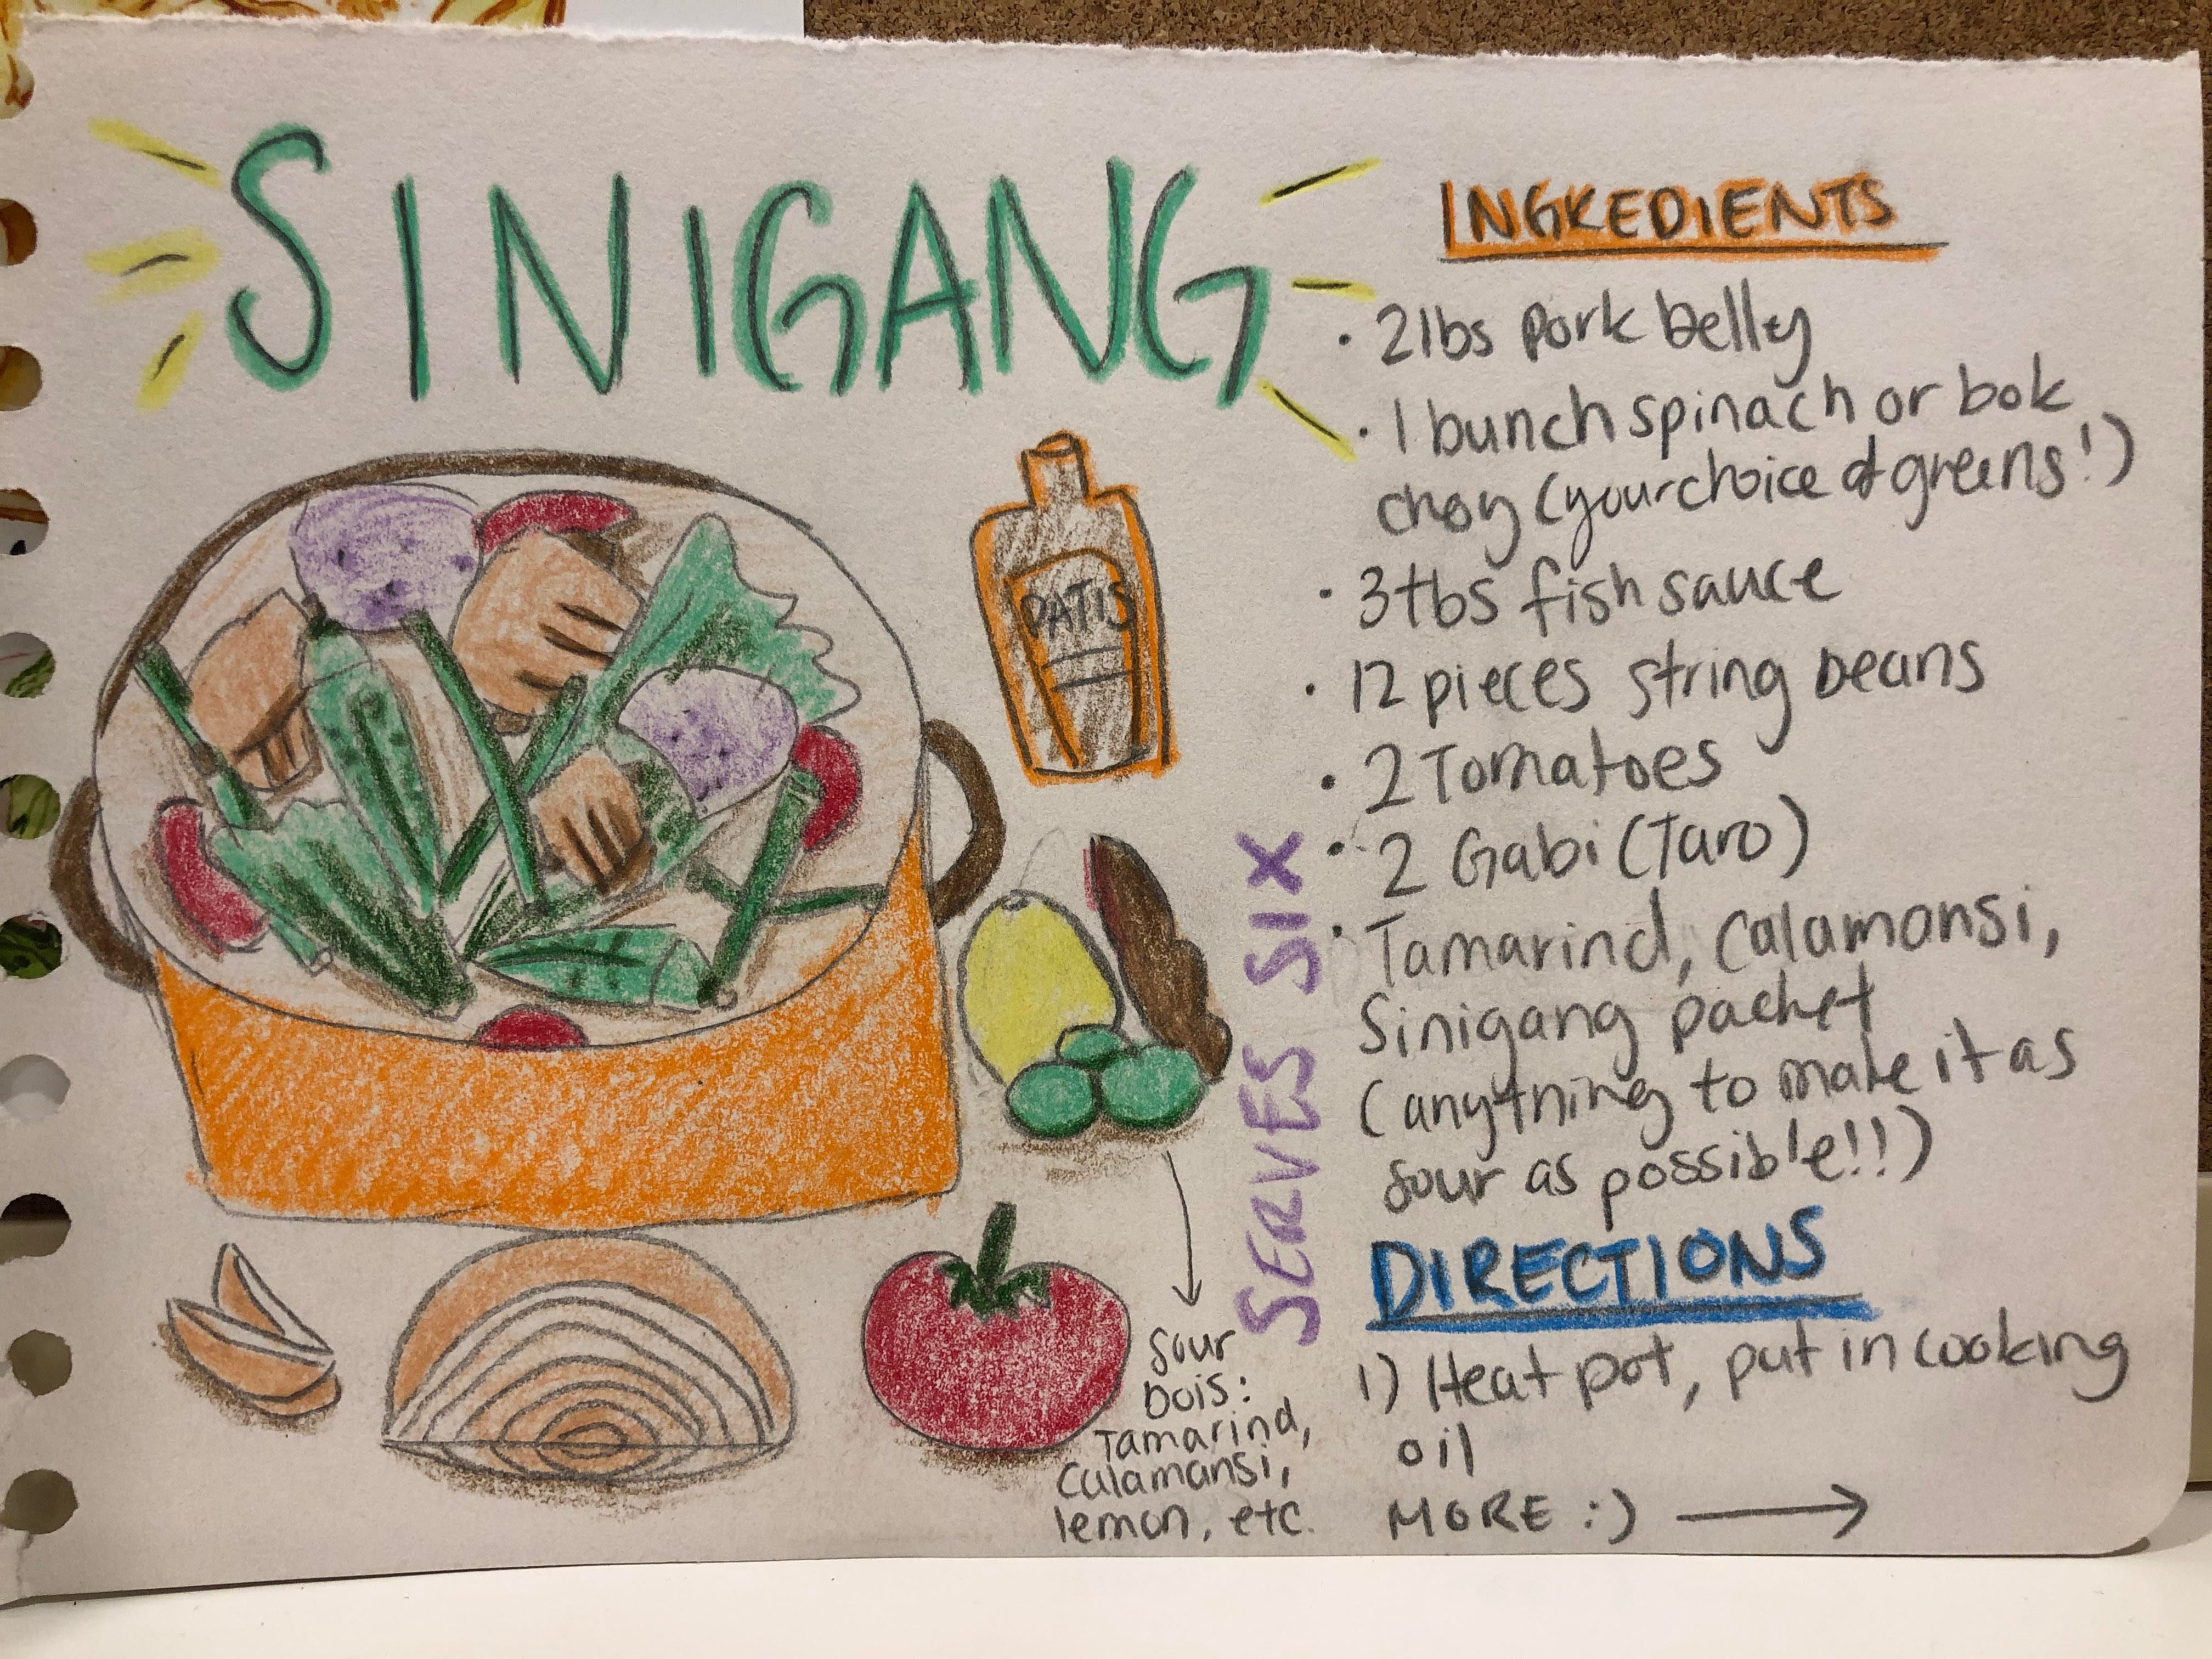 SINIGANG
DATIS
SERVES SIX
Sour
bois:
Tamarind,
Calamansi,
lemon, etc.
INGREDIENTS
• 2lbs pork belly
• 1 bunch spinach or bok
choy (your choice of greens!)
• 3tbs fish sauce
• 12 pieces string beans
• 2 Tomatoes
• 2 Gabi (Taro)
• Tamarind, Calamansi,
Sinigang packet
(anything to make it as
sour as possible!!)
DIRECTIONS
1) Heat pot, put in cooking
oil
MORE :) →